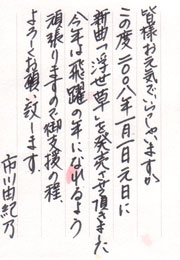 皆様お元気でいらっしゃいますか
この度二〇一八年一月一日元日に
新曲「浮世草」を発売させて頂きました
今年は飛躍の年になれるよう
頑張りますので御支援の程、
よろしくお願い致します。
市川由紀乃